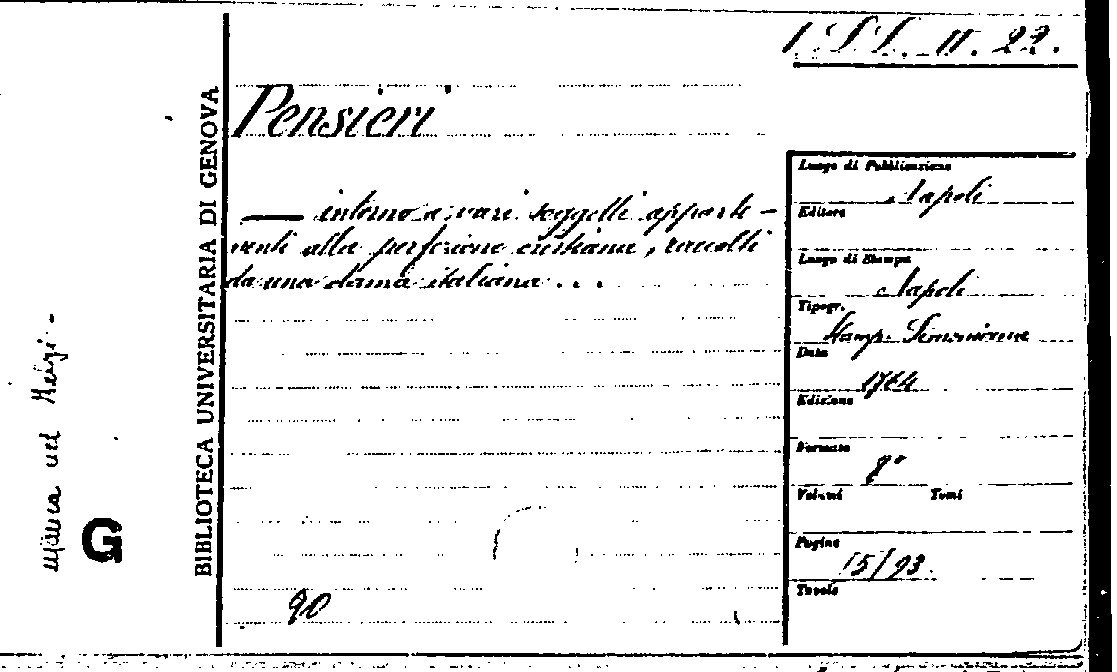 1. SS. II. 22.
Pensieri
— intorno a vari soggetti apparte-
nenti alla perfezione cristiana, raccolti
da una dama italiana...
90
BIBLIOTECA UNIVERSITARIA DI GENOVA
Luogo di Pubblicazione
Napoli
Editore
Luogo di Stampa
Napoli
Tipogr.
Stamp. Simoniana
Data
1764
Edizione
Formato
8°
Volumi Tomi
Pagine
15/93.
Tavole
manca nel
G